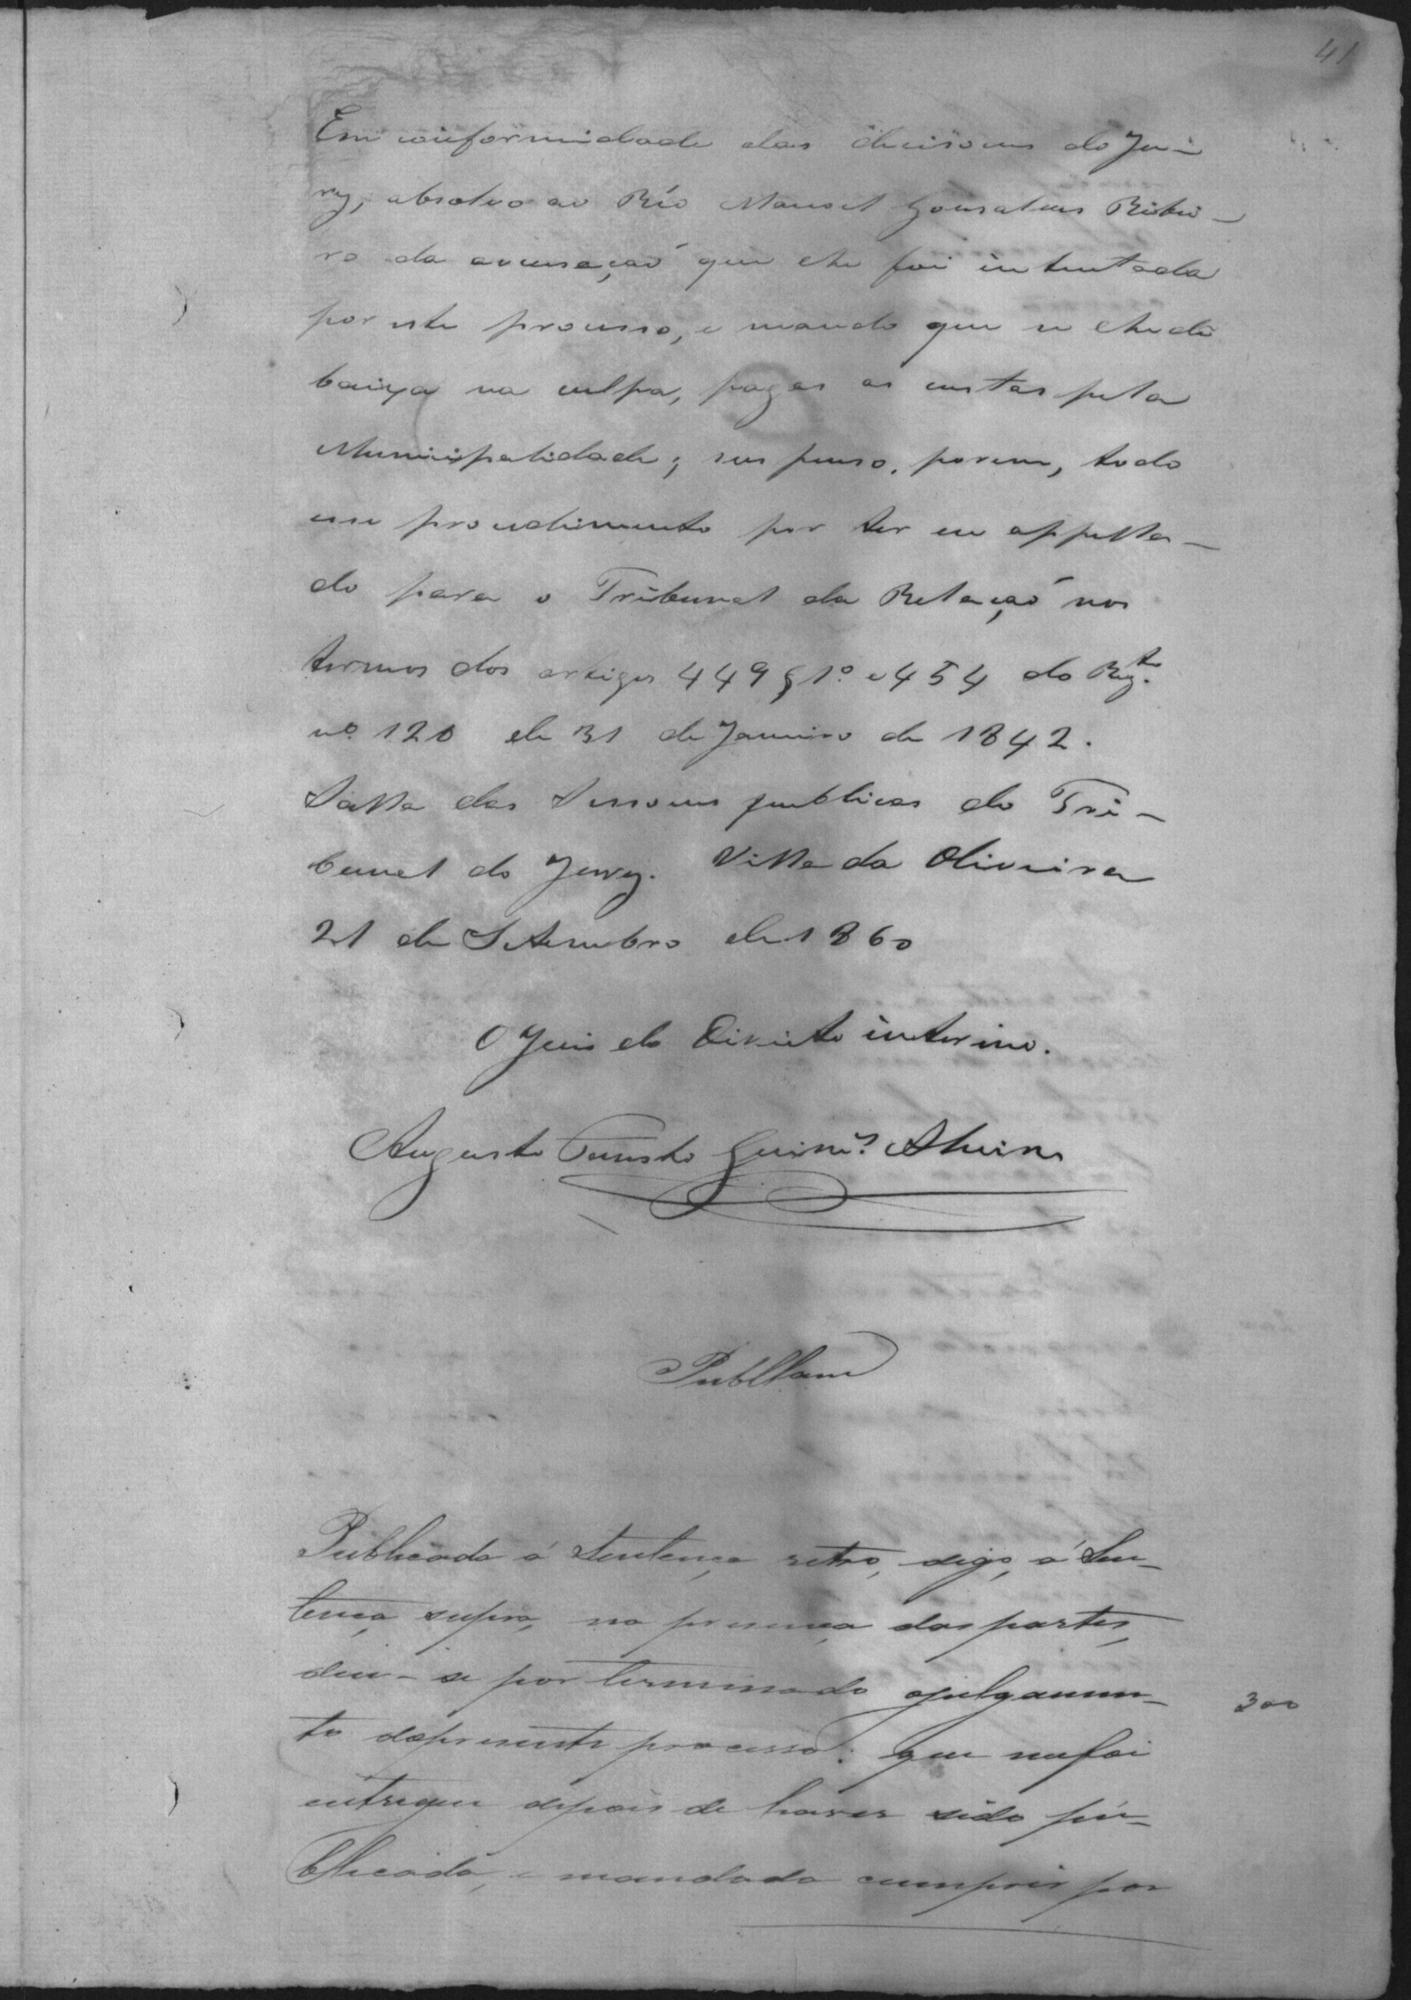 41
Em conformidade das decisoens do Ju-
ry, absolvo ao Réo Manoel Gonsalves Ribei-
ro da accusação que lhe foi intentada
por este processo, e mando que se lhe dê
baixa na culpa, pagas as custas pela
Municipalidade; suspenso, porem, todo
esse procedimento por ter eu appella-
do para o Tribunal da Relação nos
termos dos artigos 449 § 1º e 454 do Reg.to
nº 120 de 31 de Janeiro de 1842.
Salla das Sessoens publicas do Tri-
bunal do Jury. Villa da Oliveira
21 de Setembro de 1860
O Juis de Direito interino.
Augusto Fausto Guim.s Alvim
Publicam
Publicada á Sentença retro, digo, á Sen-
tença supra, na presença das partes,
deu-se por terminado o julgamen-
to do presente processo: que me foi
entregue depois de haver sido pu-
blicada, e mandada cumprir por
300